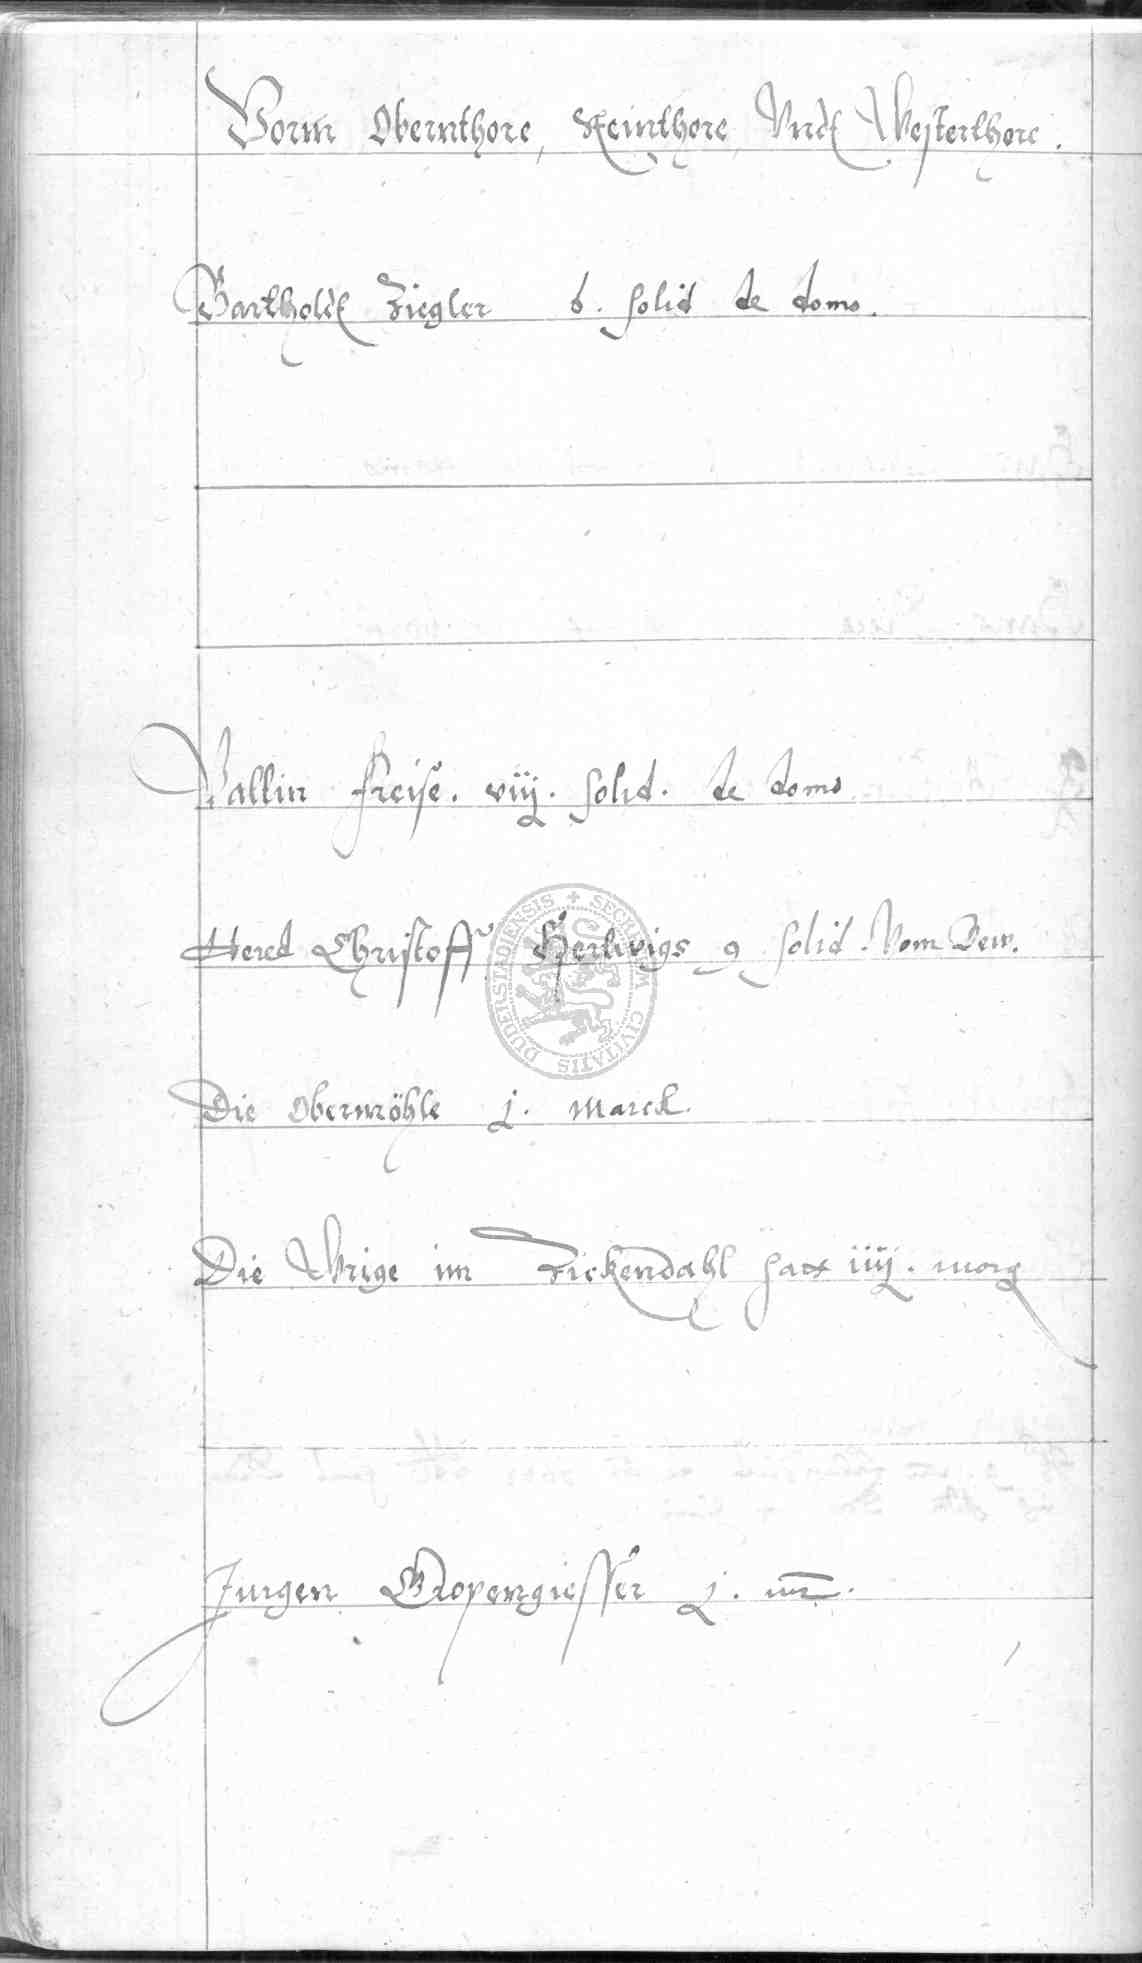 Vorm Obernthore, Steinthore Vndt Westerthore.
Bartholdt Ziegler 6. solid de domo.
Vallin Freise. viij. solid. de domo
Hered Christoff Hertwigs 9 solid. Vom Dew.
DUDERSTADIENSIS + SECRETUM CIVITATIS
Die Obermöhle j. Marck.
Die Wrige im Zickendahl hatt iiij. morg
Jurgen Gropengiesser j. mr.